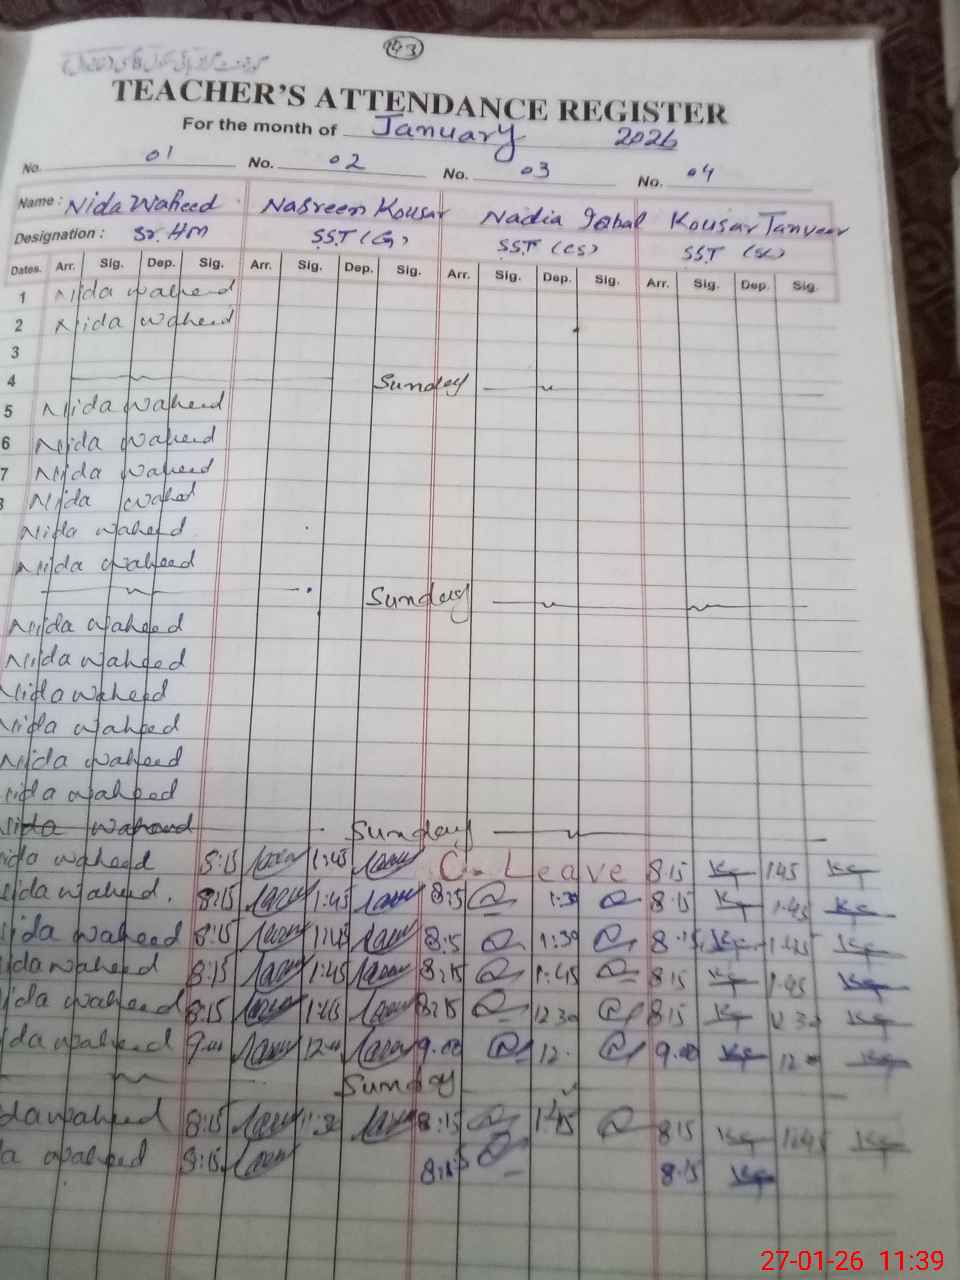 143
TEACHER'S ATTENDANCE REGISTER
For the month of January 2026
No. 01 No. 02 No. 03 No. 04
Name: Nida Waheed Nasreen Kousar Nadia Iqbal Kousar Tanveer
Designation: Sr. HM SST (G) SST (CS) SST (SC)
Dates. Arr. Sig. Dep. Sig. Arr. Sig. Dep. Sig. Arr. Sig. Dep. Sig. Arr. Sig. Dep. Sig.
1 Nida Waheed
2 Nida Waheed
3
4 Sunday
5 Nida Waheed
6 Nida Waheed
7 Nida Waheed
8 Nida Wahed
Nida Waheed
Nida Waheed
Sunday
Nida Waheed
Nida Waheed
Nida Waheed
Nida Waheed
Nida Waheed
Nida Waheed
Nida Waheed Sunday
ida Waheed 8:15 1:45 C-Leave 8:15 1:45
ida Waheed. 8:15 1:45 8:15 1:30 8:15 1:45
ida Waheed 8:15 1:45 8:15 1:30 8:15 1:45
da Waheed 8:15 1:45 8:15 1:45 8:15 1:45
ida Waheed 8:15 8:15 12 30 8:15 12 30
da Waheed 9:00 12:00 9:00 12. 9:00 12:00
Sunday
da Waheed 8:15 8:15 1:45 8:15 1:45
a Waheed 8:15 8:15 8:15
27-01-26 11:39